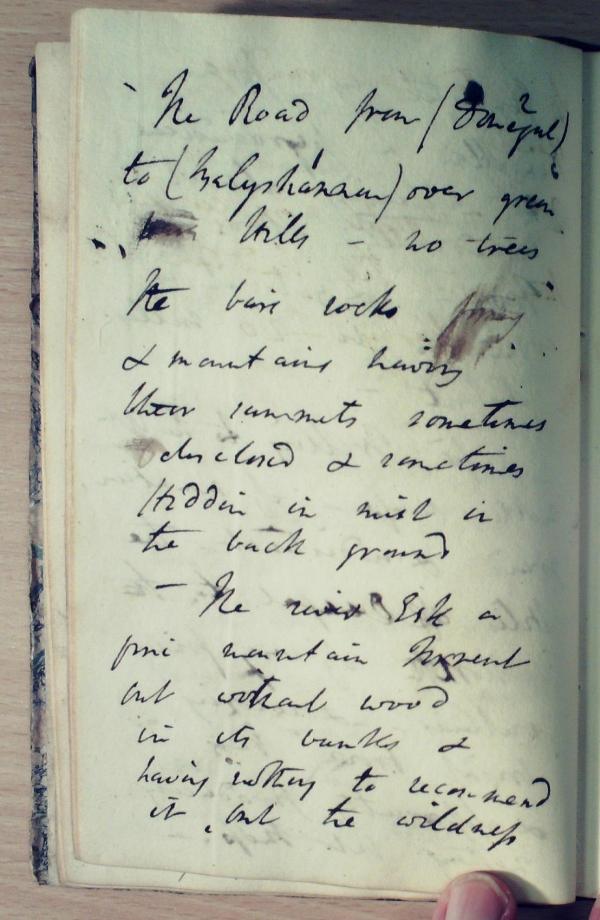 The Road from (Donegal)
to (Balyshannan) over green
Hills - no trees
the bare rocks
& mountains having
their summits sometimes
disclosed & sometimes
Hidden in mist in
the back ground
- The river Esk a
fine mountain Torrent
but without wood
in its banks &
having nothing to recommend
it but the wildness